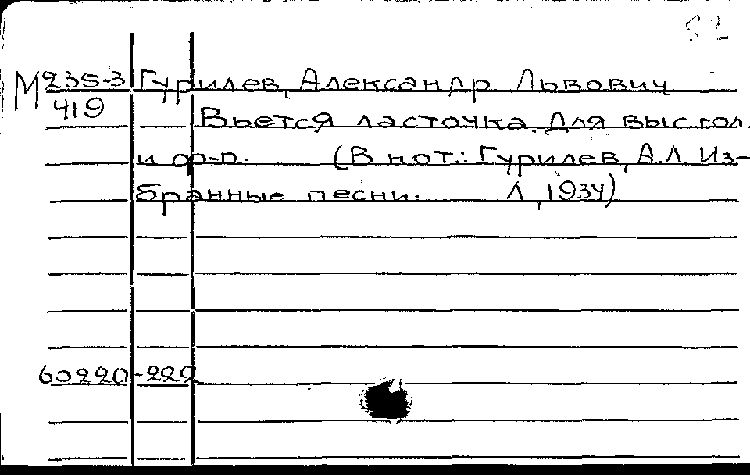 52
М 235-3 Гурилев, Александр Львович
419
Вьется ласточка. Для выс. гол.
и ф-п. (В нот.: Гурилев, А.Л. Из-
бранные песни. Л., 1934)
60220-222